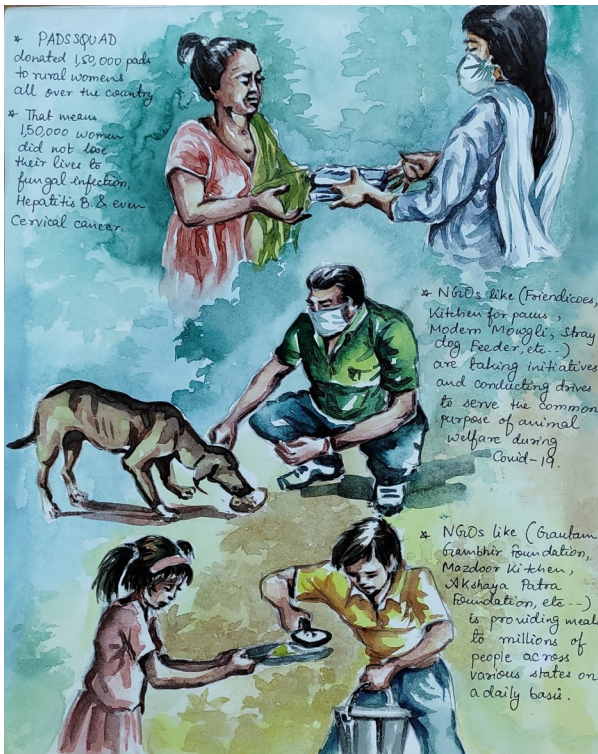 * PADSSQUAD
donated 1,50,000 pads
to rural womens
all over the country
* That means
1,50,000 women
did not lose
their lives to
fungal infection,
Hepatitis B & even
Cervical cancer.
* NGOs like (Friendicoes,
Kitchen for paws,
Modern Mowgli, Stray
dog Feeder, etc--)
are taking initiatives
and conducting drives
to serve the common
purpose of animal
welfare during
Covid-19.
* NGOs like (Grautam
Grambhir Foundation,
Mazdoor Kitchen,
Akshaya Patra
Foundation, etc--)
is providing meals
to millions of
people across
various states on
a daily basis.